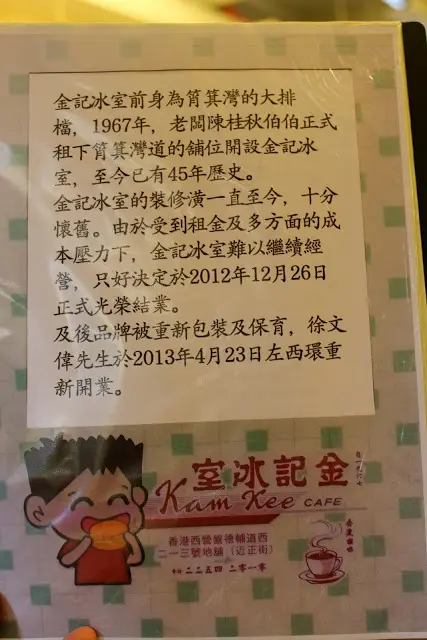 金記冰室前身為筲箕灣的大排
檔，1967年，老闆陳桂秋伯伯正式
租下筲箕灣道的舖位開設金記冰
室，至今已有45年歷史。
金記冰室的裝修潢一直至今，十分
懷舊。由於受到租金及多方面的成
本壓力下，金記冰室難以繼續經
營，只好決定於2012年12月26日
正式光榮結業。
及後品牌被重新包裝及保育，徐文
偉先生於2013年4月23日左西環重
新開業。
室冰記金
Kam Kee CAFE
香港西營盤德輔道西
二一三號地舖（近正街）
二二五四 二零一零